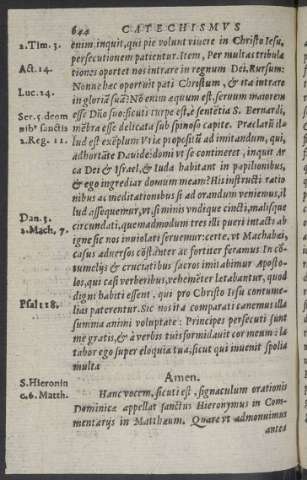 644 CATECHISMVS
2. Tim. 3. enim, inquit, qui pie volunt viuere in Christo Iesu,
persecutionem patientur. Item, Per multas tribula
Act. 14. tiones oportet nos intrare in regnum Dei. Rursum:
Nonne hæc oportuit pati Christum, & ita intrare
Luc. 24. in gloriā suā? Nō enim æquum est, seruum maiorem
esse Dño suo: sicuti turpe est, è sententia S. Bernardi,
Ser. 5. de om mēbra esse delicata sub spinoso capite. Præclarū il-
nibꝰ sanctis lud est exēplum Vriæ propositū ad imitandum, qui,
2. Reg. 11. adhortāte Dauide: domi vt se contineret, inquit Ar
ca Dei & Israel, & Iuda habitant in papilionibus,
& ego ingrediar domum meam? His instructi ratio
nibus ac meditationibus si ad orandum veniemus, il
lud assequemur, vt, si minis vndique cincti, malisque
Dan. 3. circumdati, quemadmodum tres illi pueri intacti ab
2. Mach. 7. igne sic nos inuiolati seruemur: certe, vt Machabæi,
casus aduersos cōstanter ac fortiter feramus. In cō-
tumelijs & cruciatibus sacros imitabimur Aposto-
los, qui cæsi verberibus, vehemēter lætabantur, quod
digni habiti essent, qui pro Christo Iesu contume-
Psal 118. lias paterentur. Sic nos ita comparati canemus illa
summa animi voluptate: Principes persecuti sunt
me gratis, & à verbis tuis formidauit cor meum: læ
tabor ego super eloquia tua, sicut qui inuenit spolia
multa
Amen.
S. Hieronin Hanc vocem, sicuti est, signaculum orationis
c. 6. Matth. Dominicæ appellat sanctus Hieronymus in Com-
mentarijs in Matthæum. Quare vt admonuimus
antea